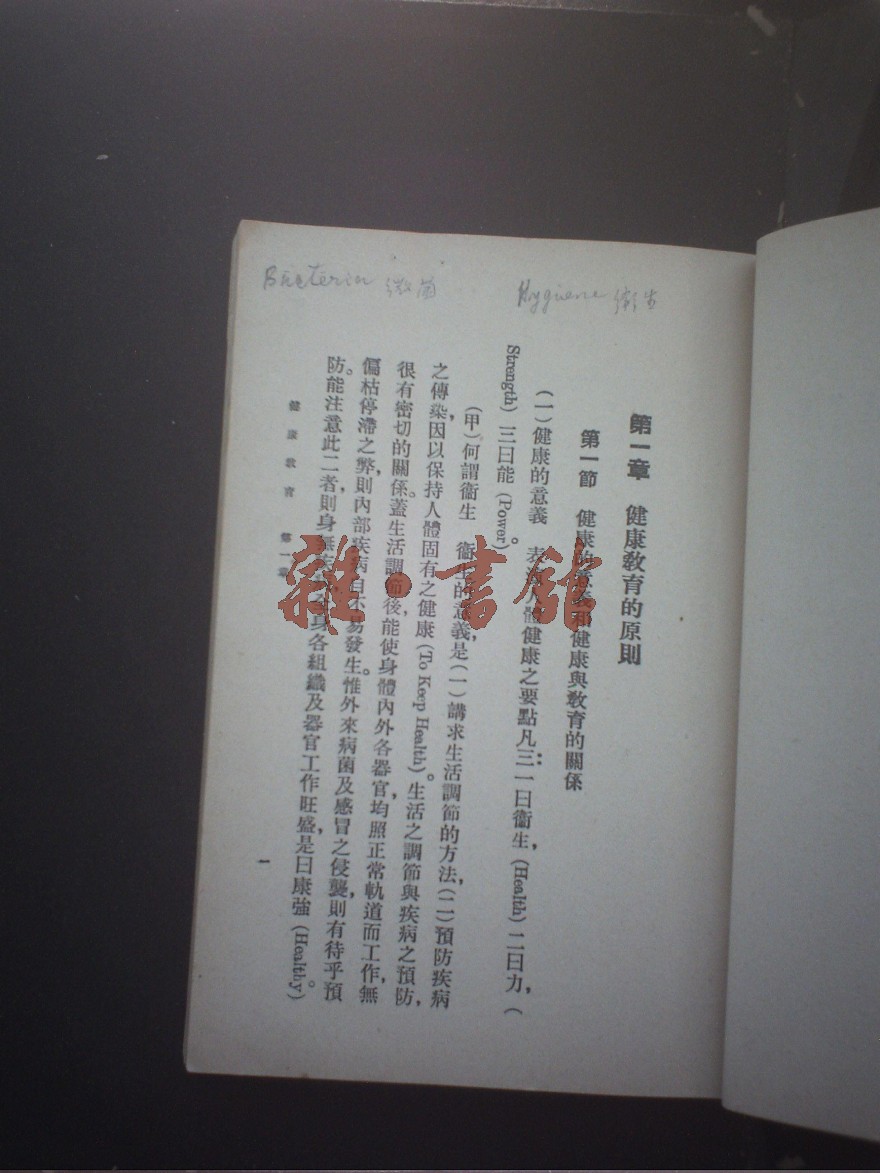 Hygiene 衛生
Bacteria 微菌
第一章 健康教育的原則
第一節 健康的意義和健康與教育的關係
(一)健康的意義 表 人體健康之要點凡三：一曰衞生，(Health)二曰力，(
Strength)三曰能(Power)。
(甲)何謂衞生 衞生的意義，是(一)講求生活調節的方法，(二)預防疾病
之傳染，因以保持人體固有之健康(To Keep Health)。生活之調節與疾病之預防，
很有密切的關係。蓋生活調節後，能使身體內外各器官，均照正常軌道而工作，無
偏枯停滯之弊，則內部疾病自不易發生。惟外來病菌及感冒之侵襲，則有待乎預
防。能注意此二者，則身無疾 身各組織及器官工作旺盛，是曰康強(Healthy)。
健康教育 第一章
一
雜·書館